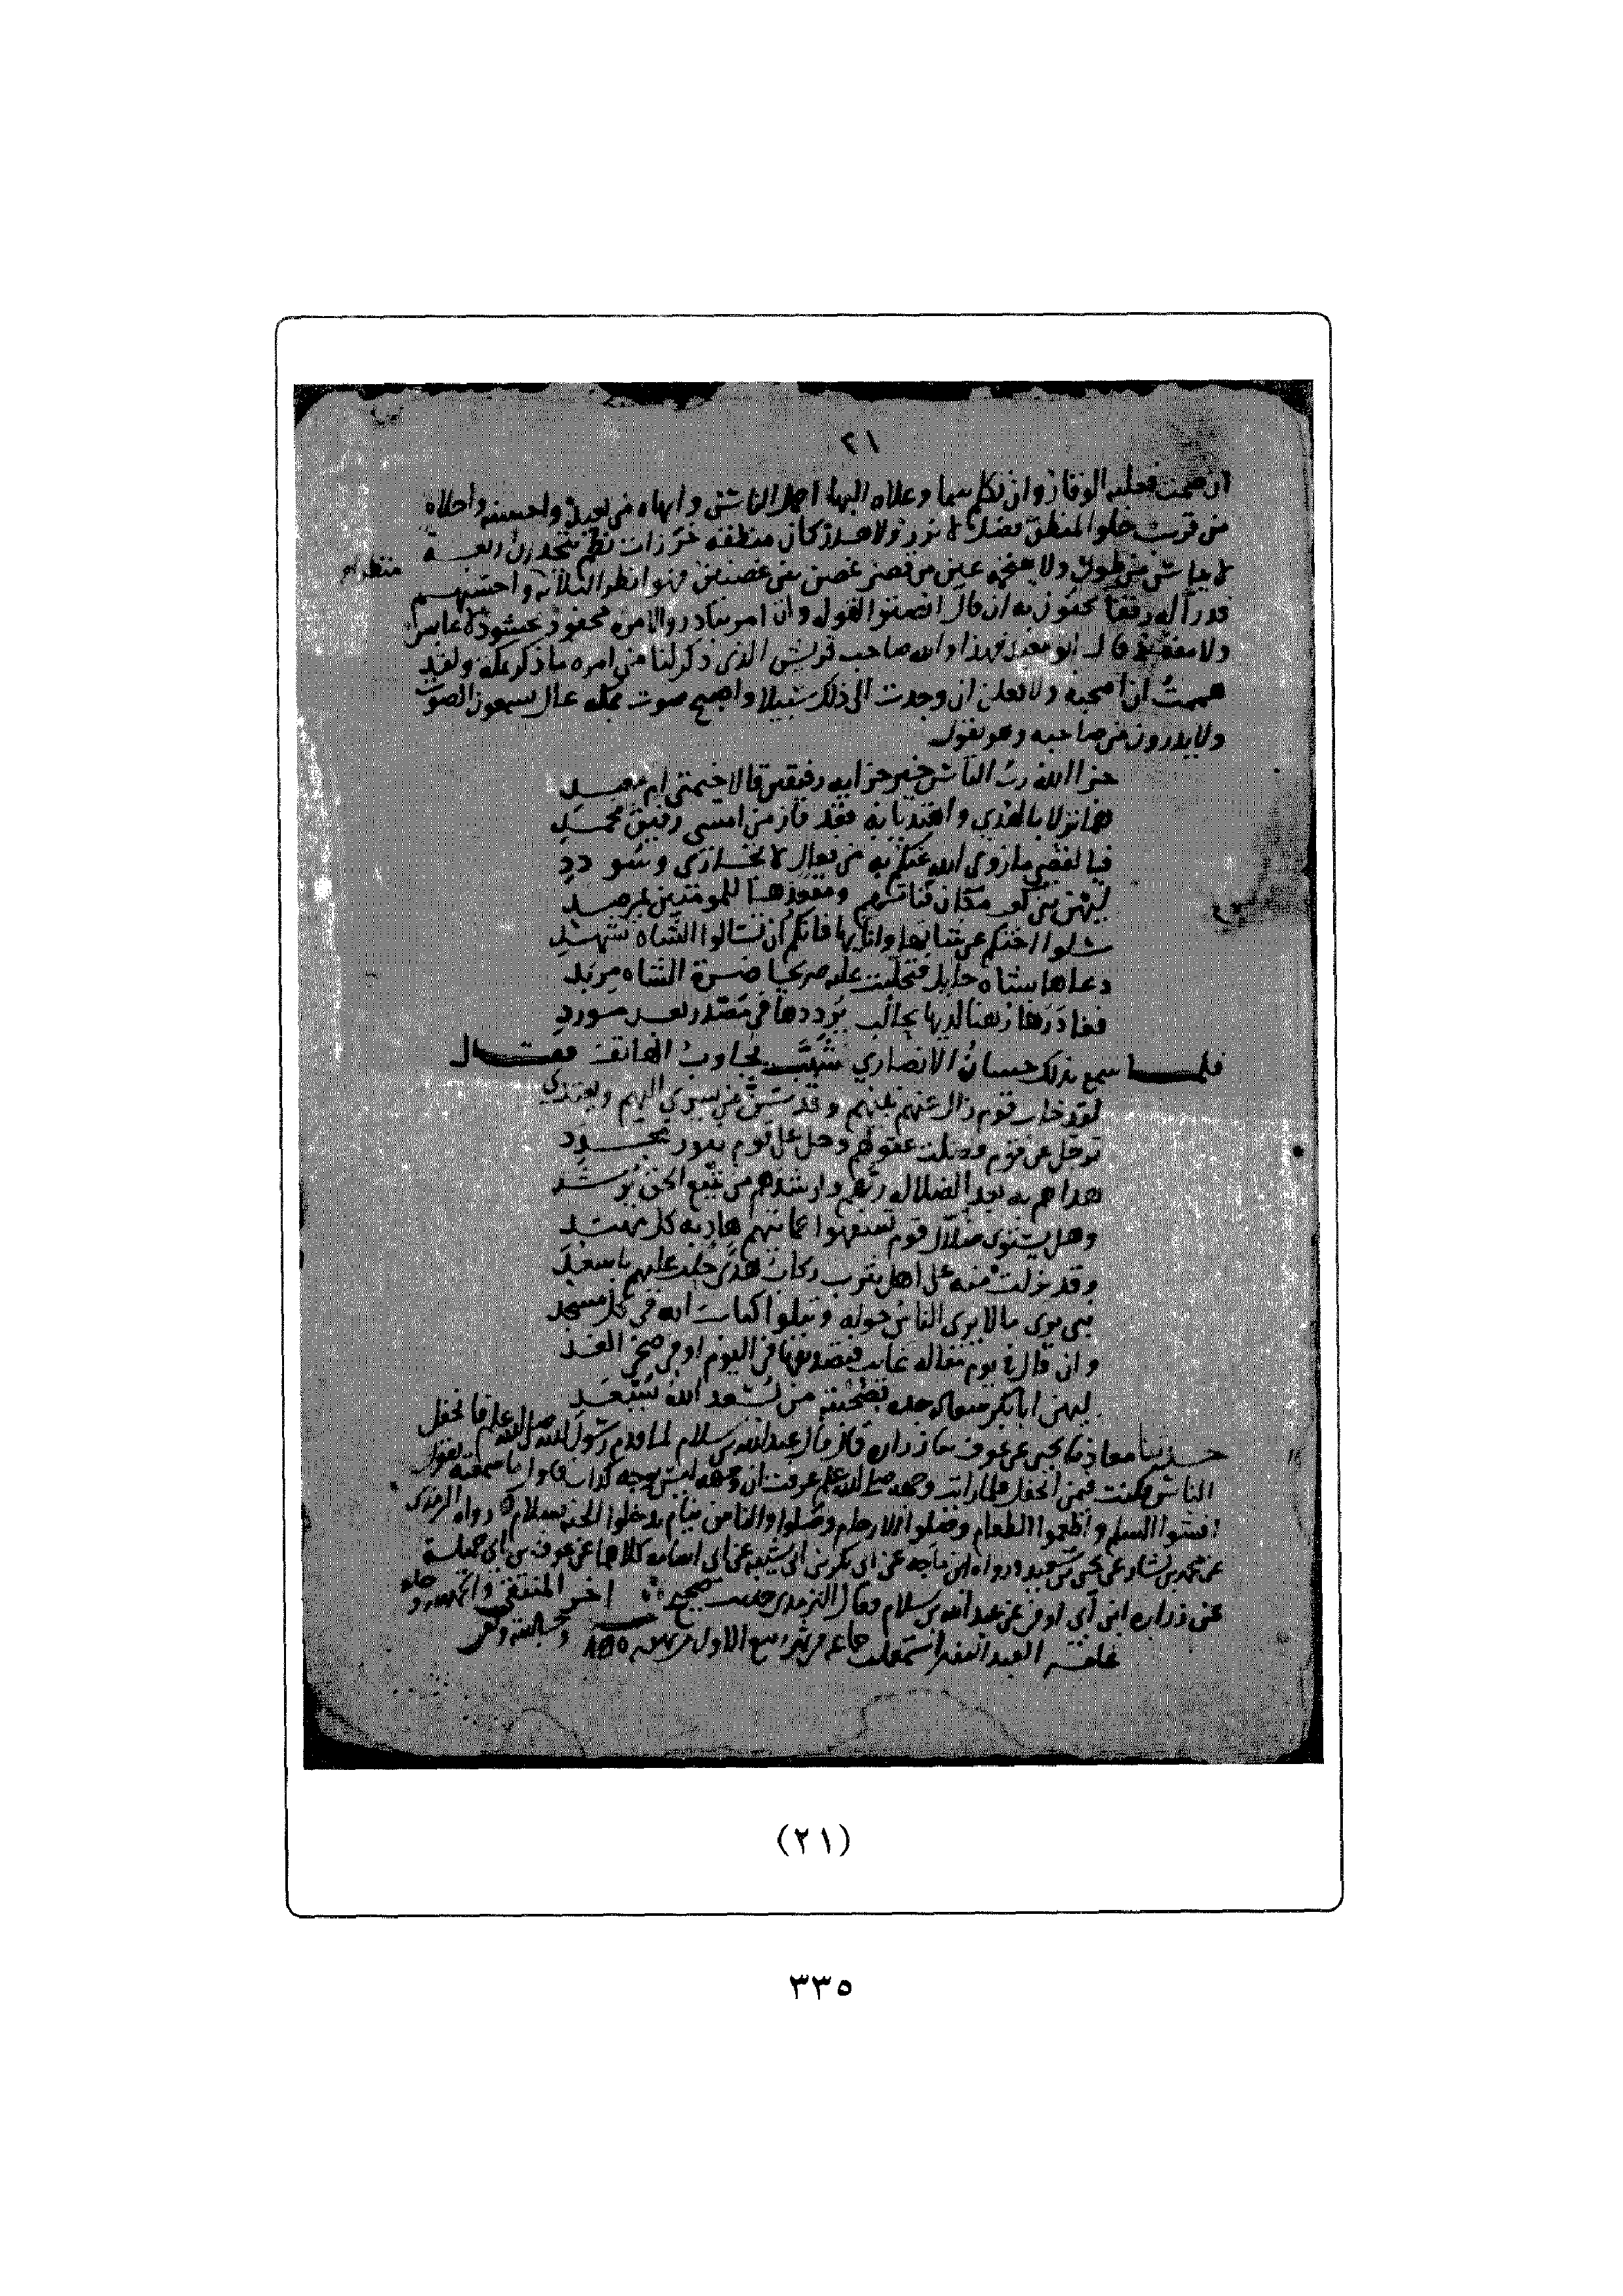 ٢١
ان صمت فعليه الوقار وان تكلم سما وعلاه البها اجمل الناس وابهاه من بعيد واحسنه واحلاه
من قريب حلو المنطق فصل لا نزر ولا هذر كان منطقه خرزات نظم يتحدرن
لا ولا عين من قصر غصن بين غصنين فهو انظر الثلاثة واحسنهم
قدرا له رفقا يحفون به ان قال انصتوا لقوله وان امر تبادروا لامره محفود محشود لا عابس
ولا مفند قال ابو معبد فهذا والله صاحب قريش الذي ذكر لنا من امره ما ذكر بمكة ولقد
هممت ان اصحبه ولافعلن ان وجدت الى ذلك سبيلا واصبح صوت بمكه عال يسمعون الصوت
ولا يدرون من صاحبه وهو يقول
جزا الله رب الناس خير جزايه رفيقين قالا خيمتي ام معبد
هما نزلا بالهدي واهتدت به فقد فاز من امسى رفيق محمد
فيا لقصي ما زوى الله عنكم به من فعال لا تجازى وسودد
ليهن بني كعب مكان فتاتهم ومقعدها للمومنين بمرصد
سلوا اختكم عن شاتها واناىها فانكم ان تسالوا الشاه تشهد
دعاها بشاه حايل فتحلبت عليه صريحا ضرة الشاه مزبد
فغادرها رهنا لديها بحالب يرددها في مصدر ثم مورد
فلما سمع بذلك حسان الانصاري شبب يجاوب الهاتف فقال
لقد خاب قوم زال عنهم نبيهم وقدس من يسري اليهم ويغتدي
ترحل عن قوم فضلت عقولهم وحل على قوم بنور مجدد
هداهم به بعد الضلاله ربهم وارشدهم من يتبع الحق يرشد
وهل يستوي ضلال قوم تسفهوا عمايتهم هاد به كل مهتد
وقد نزلت منه على اهل يثرب ركاب هدى حلت عليهم باسعد
نبي يرى مالا يرى الناس حوله ويتلوا كتاب الله في كل مسجد
وان قال في يوم مقاله غايب فتصديقها في اليوم او في ضحى الغد
ليهن ابا بكر سعاده جده بصحبته من يسعد الله يسعد
حدثنا معاذ ما يحيى عن عوف ما زراره قال قال عبد الله بن سلام لما قدم رسول الله صلى الله عليه وسلم انجفل
الناس فكنت فيمن انجفل فلما رايت وجهه صلى الله عليه وسلم عرفت ان وجهه ليس بوجه كذاب فاول ما سمعته يقول
افشوا السلم واطعموا الطعام وصلوا الارحام وصلوا والناس نيام تدخلوا الجنة بسلام رواه الترمذي
عن محمد بن بشار عن يحيى بن سعيد ورواه ابن ماجه عن ابي بكر بن ابي شيبه عن ابي اسامه كلاهما عن عوف بن ابي جميلة
عن زراره ابن ابي اوفى عن عبد الله بن سلام وقال الترمذي حديث صحيح اخر المنتقى والحمد لله
علقه العبد الفقير اسمعيل بن جماعه في شهر ربيع الاول
(٢١)
٣٣٥